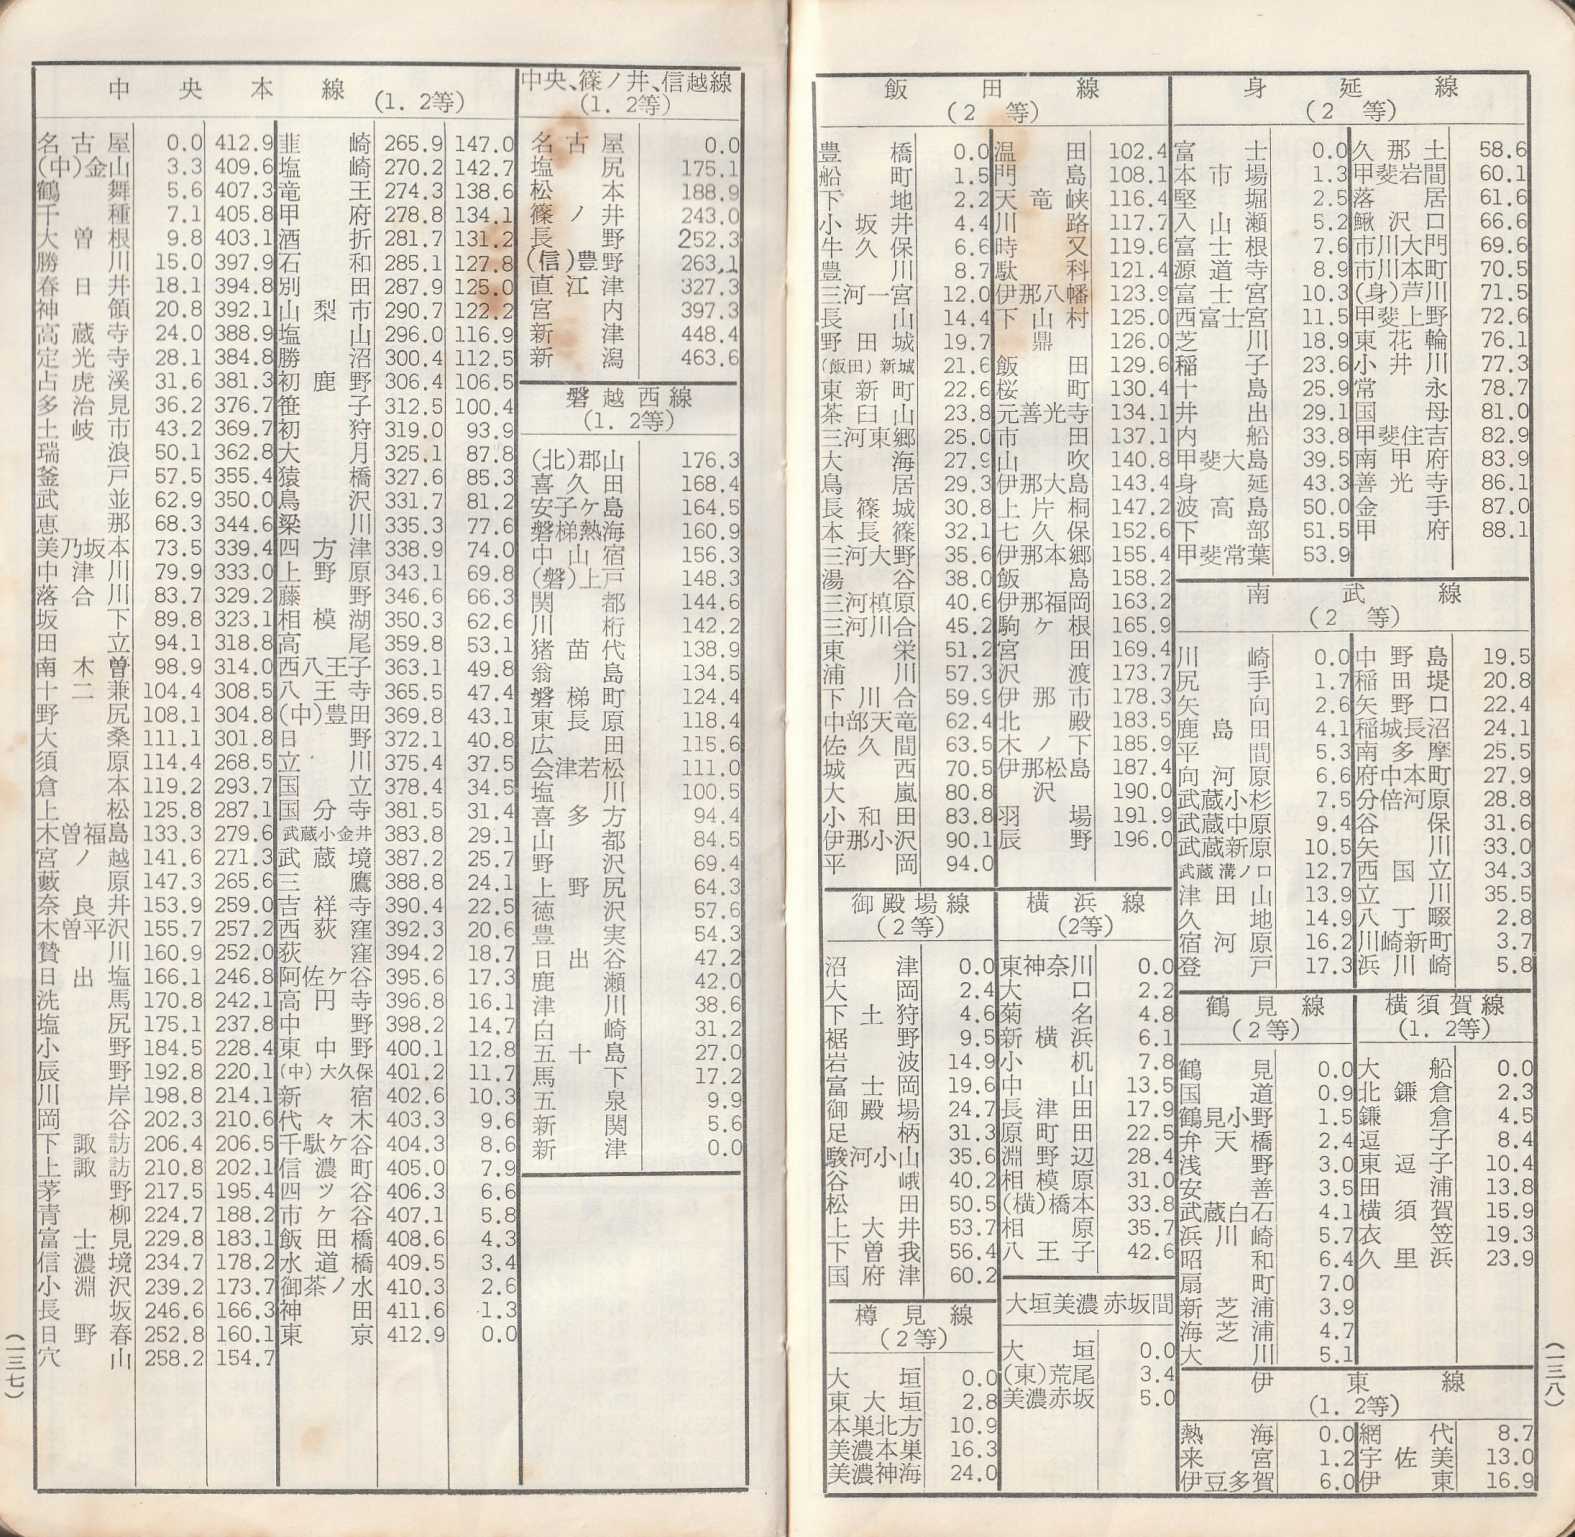 中央本線
(1. 2等)
名古屋 0.0 412.9
(中)金山 3.3 409.6
鶴舞 5.6 407.3
千種 7.1 405.8
大曽根 9.8 403.1
勝川 15.0 397.9
春日井 18.1 394.8
神領 20.8 392.1
高蔵寺 24.0 388.9
定光寺 28.1 384.8
古虎渓 31.6 381.3
多治見 36.2 376.7
土岐市 43.2 369.7
瑞浪 50.1 362.8
釜戸 57.5 355.4
武並 62.9 350.0
恵那 68.3 344.6
美乃坂本 73.5 339.4
中津川 79.9 333.0
落合川 83.7 329.2
坂下 89.8 323.1
田立 94.1 318.8
南木曽 98.9 314.0
十二兼 104.4 308.5
野尻 108.1 304.8
大桑 111.1 301.8
須原 114.4 268.5
倉本 119.2 293.7
上松 125.8 287.1
木曽福島 133.3 279.6
宮ノ越 141.6 271.3
藪原 147.3 265.6
奈良井 153.9 259.0
木曽平沢 155.7 257.2
贄川 160.9 252.0
日出塩 166.1 246.8
洗馬 170.8 242.1
塩尻 175.1 237.8
小野 184.5 228.4
辰野 192.8 220.1
川岸 198.8 214.1
岡谷 202.3 210.6
下諏訪 206.4 206.5
上諏訪 210.8 202.1
茅野 217.5 195.4
青柳 224.7 188.2
富士見 229.8 183.1
信濃境 234.7 178.2
小淵沢 239.2 173.7
長坂 246.6 166.3
日野春 252.8 160.1
穴山 258.2 154.7
韮崎 265.9 147.0
塩崎 270.2 142.7
竜王 274.3 138.6
甲府 278.8 134.1
酒折 281.7 131.2
石和 285.1 127.8
別田 287.9 125.0
山梨市 290.7 122.2
塩山 296.0 116.9
勝沼 300.4 112.5
初鹿野 306.4 106.5
笹子 312.5 100.4
初狩 319.0 93.9
大月 325.1 87.8
猿橋 327.6 85.3
鳥沢 331.7 81.2
梁川 335.3 77.6
四方津 338.9 74.0
上野原 343.1 69.8
藤野 346.6 66.3
相模湖 350.3 62.6
高尾 359.8 53.1
西八王子 363.1 49.8
八王寺 365.5 47.4
(中)豊田 369.8 43.1
日野 372.1 40.8
立川 375.4 37.5
国立 378.4 34.5
国分寺 381.5 31.4
武蔵小金井 383.8 29.1
武蔵境 387.2 25.7
三鷹 388.8 24.1
吉祥寺 390.4 22.5
西荻窪 392.3 20.6
荻窪 394.2 18.7
阿佐ケ谷 395.6 17.3
高円寺 396.8 16.1
中野 398.2 14.7
東中野 400.1 12.8
(中)大久保 401.2 11.7
新宿 402.6 10.3
代々木 403.3 9.6
千駄ケ谷 404.3 8.6
信濃町 405.0 7.9
四ッ谷 406.3 6.6
市ケ谷 407.1 5.8
飯田橋 408.6 4.3
水道橋 409.5 3.4
御茶ノ水 410.3 2.6
神田 411.6 1.3
東京 412.9 0.0
中央、篠ノ井、信越線
(1. 2等)
名古屋 0.0
塩尻 175.1
松本 188.9
篠ノ井 243.0
長野 252.3
(信)豊野 263.1
直江津 327.3
宮内 397.3
新津 448.4
新潟 463.6
磐越西線
(1. 2等)
(北)郡山 176.3
喜久田 168.4
安子ケ島 164.5
磐梯熱海 160.9
中山宿 156.3
(磐)上戸 148.3
関都 144.6
川桁 142.2
猪苗代 138.9
翁島 134.5
磐梯町 124.4
東長原 118.4
広田 115.6
会津若松 111.0
塩川 100.5
喜多方 94.4
山都 84.5
野沢 69.4
上野尻 64.3
徳沢 57.6
豊実 54.3
日出谷 47.2
鹿瀬 42.0
津川 38.6
白崎 31.2
五十島 27.0
馬下 17.2
五泉 9.9
新関 5.6
新津 0.0
(一三七)
飯田線
(2 等)
豊橋 0.0
船町 1.5
下地 2.2
小坂井 4.4
牛久保 6.6
豊川 8.7
三河一宮 12.0
長山 14.4
野田城 19.7
(飯田)新城 21.6
東新町 22.6
茶臼山 23.8
三河東郷 25.0
大海 27.9
鳥居 29.3
長篠城 30.8
本長篠 32.1
三河大野 35.6
湯谷 38.0
三河槙原 40.6
三河川合 45.2
東栄 51.2
浦川 57.3
下川合 59.9
中部天竜 62.4
佐久間 63.5
城西 70.5
大嵐 80.8
小和田 83.8
伊那小沢 90.1
平岡 94.0
温田 102.4
門島 108.1
天竜峡 116.4
川路 117.7
時又 119.6
駄科 121.4
伊那八幡 123.9
下山村 125.0
鼎 126.0
飯田 129.6
桜町 130.4
元善光寺 134.1
市田 137.1
山吹 140.8
伊那大島 143.4
上片桐 147.2
七久保 152.6
伊那本郷 155.4
飯島 158.2
伊那福岡 163.2
駒ケ根 165.9
宮田 169.4
沢渡 173.7
伊那市 178.3
北殿 183.5
木ノ下 185.9
伊那松島 187.4
沢 190.0
羽場 191.9
辰野 196.0
御殿場線
(2等)
沼津 0.0
大岡 2.4
下土狩 4.6
裾野 9.5
岩波 14.9
富士岡 19.6
御殿場 24.7
足柄 31.3
駿河小山 35.6
谷峨 40.2
松田 50.5
上大井 53.7
下曽我 56.4
国府津 60.2
樽見線
(2等)
大垣 0.0
東大垣 2.8
本巣北方 10.9
美濃本巣 16.3
美濃神海 24.0
横浜線
(2等)
東神奈川 0.0
大口 2.2
菊名 4.8
新横浜 6.1
小机 7.8
中山 13.5
長津田 17.9
原町田 22.5
淵野辺 28.4
相模原 31.0
(横)橋本 33.8
相原 35.7
八王子 42.6
大垣美濃赤坂間
大垣 0.0
(東)荒尾 3.4
美濃赤坂 5.0
身延線
(2 等)
富士 0.0
本市場 1.3
堅堀 2.5
入山瀬 5.2
富士根 7.6
源道寺 8.9
富士宮 10.3
西富士宮 11.5
芝川 18.9
稲子 23.6
十島 25.9
井出 29.1
内船 33.8
甲斐大島 39.5
身延 43.3
波高島 50.0
下部 51.5
甲斐常葉 53.9
久那土 58.6
甲斐岩間 60.1
落居 61.6
鰍沢口 66.6
市川大門 69.6
市川本町 70.5
(身)芦川 71.5
甲斐上野 72.6
東花輪 76.1
小井川 77.3
常永 78.7
国母 81.0
甲斐住吉 82.9
南甲府 83.9
善光寺 86.1
金手 87.0
甲府 88.1
南武線
(2 等)
川崎 0.0
尻手 1.7
矢向 2.6
鹿島田 4.1
平間 5.3
向河原 6.6
武蔵小杉 7.5
武蔵中原 9.4
武蔵新原 10.5
武蔵溝ノ口 12.7
津田山 13.9
久地 14.9
宿河原 16.2
登戸 17.3
中野島 19.5
稲田堤 20.8
矢野口 22.4
稲城長沼 24.1
南多摩 25.5
府中本町 27.9
分倍河原 28.8
谷保 31.6
矢川 33.0
西国立 34.3
立川 35.5
八丁畷 2.8
川崎新町 3.7
浜川崎 5.8
鶴見線
(2等)
鶴見 0.0
国道 0.9
鶴見小野 1.5
弁天橋 2.4
浅野 3.0
安善 3.5
武蔵白石 4.1
浜川崎 5.7
昭和 6.4
扇町 7.0
新芝浦 3.9
海芝浦 4.7
大川 5.1
横須賀線
(1. 2等)
大船 0.0
北鎌倉 2.3
鎌倉 4.5
逗子 8.4
東逗子 10.4
田浦 13.8
横須賀 15.9
衣笠 19.3
久里浜 23.9
伊東線
(1. 2等)
熱海 0.0
来宮 1.2
伊豆多賀 6.0
網代 8.7
宇佐美 13.0
伊東 16.9
(一三八)